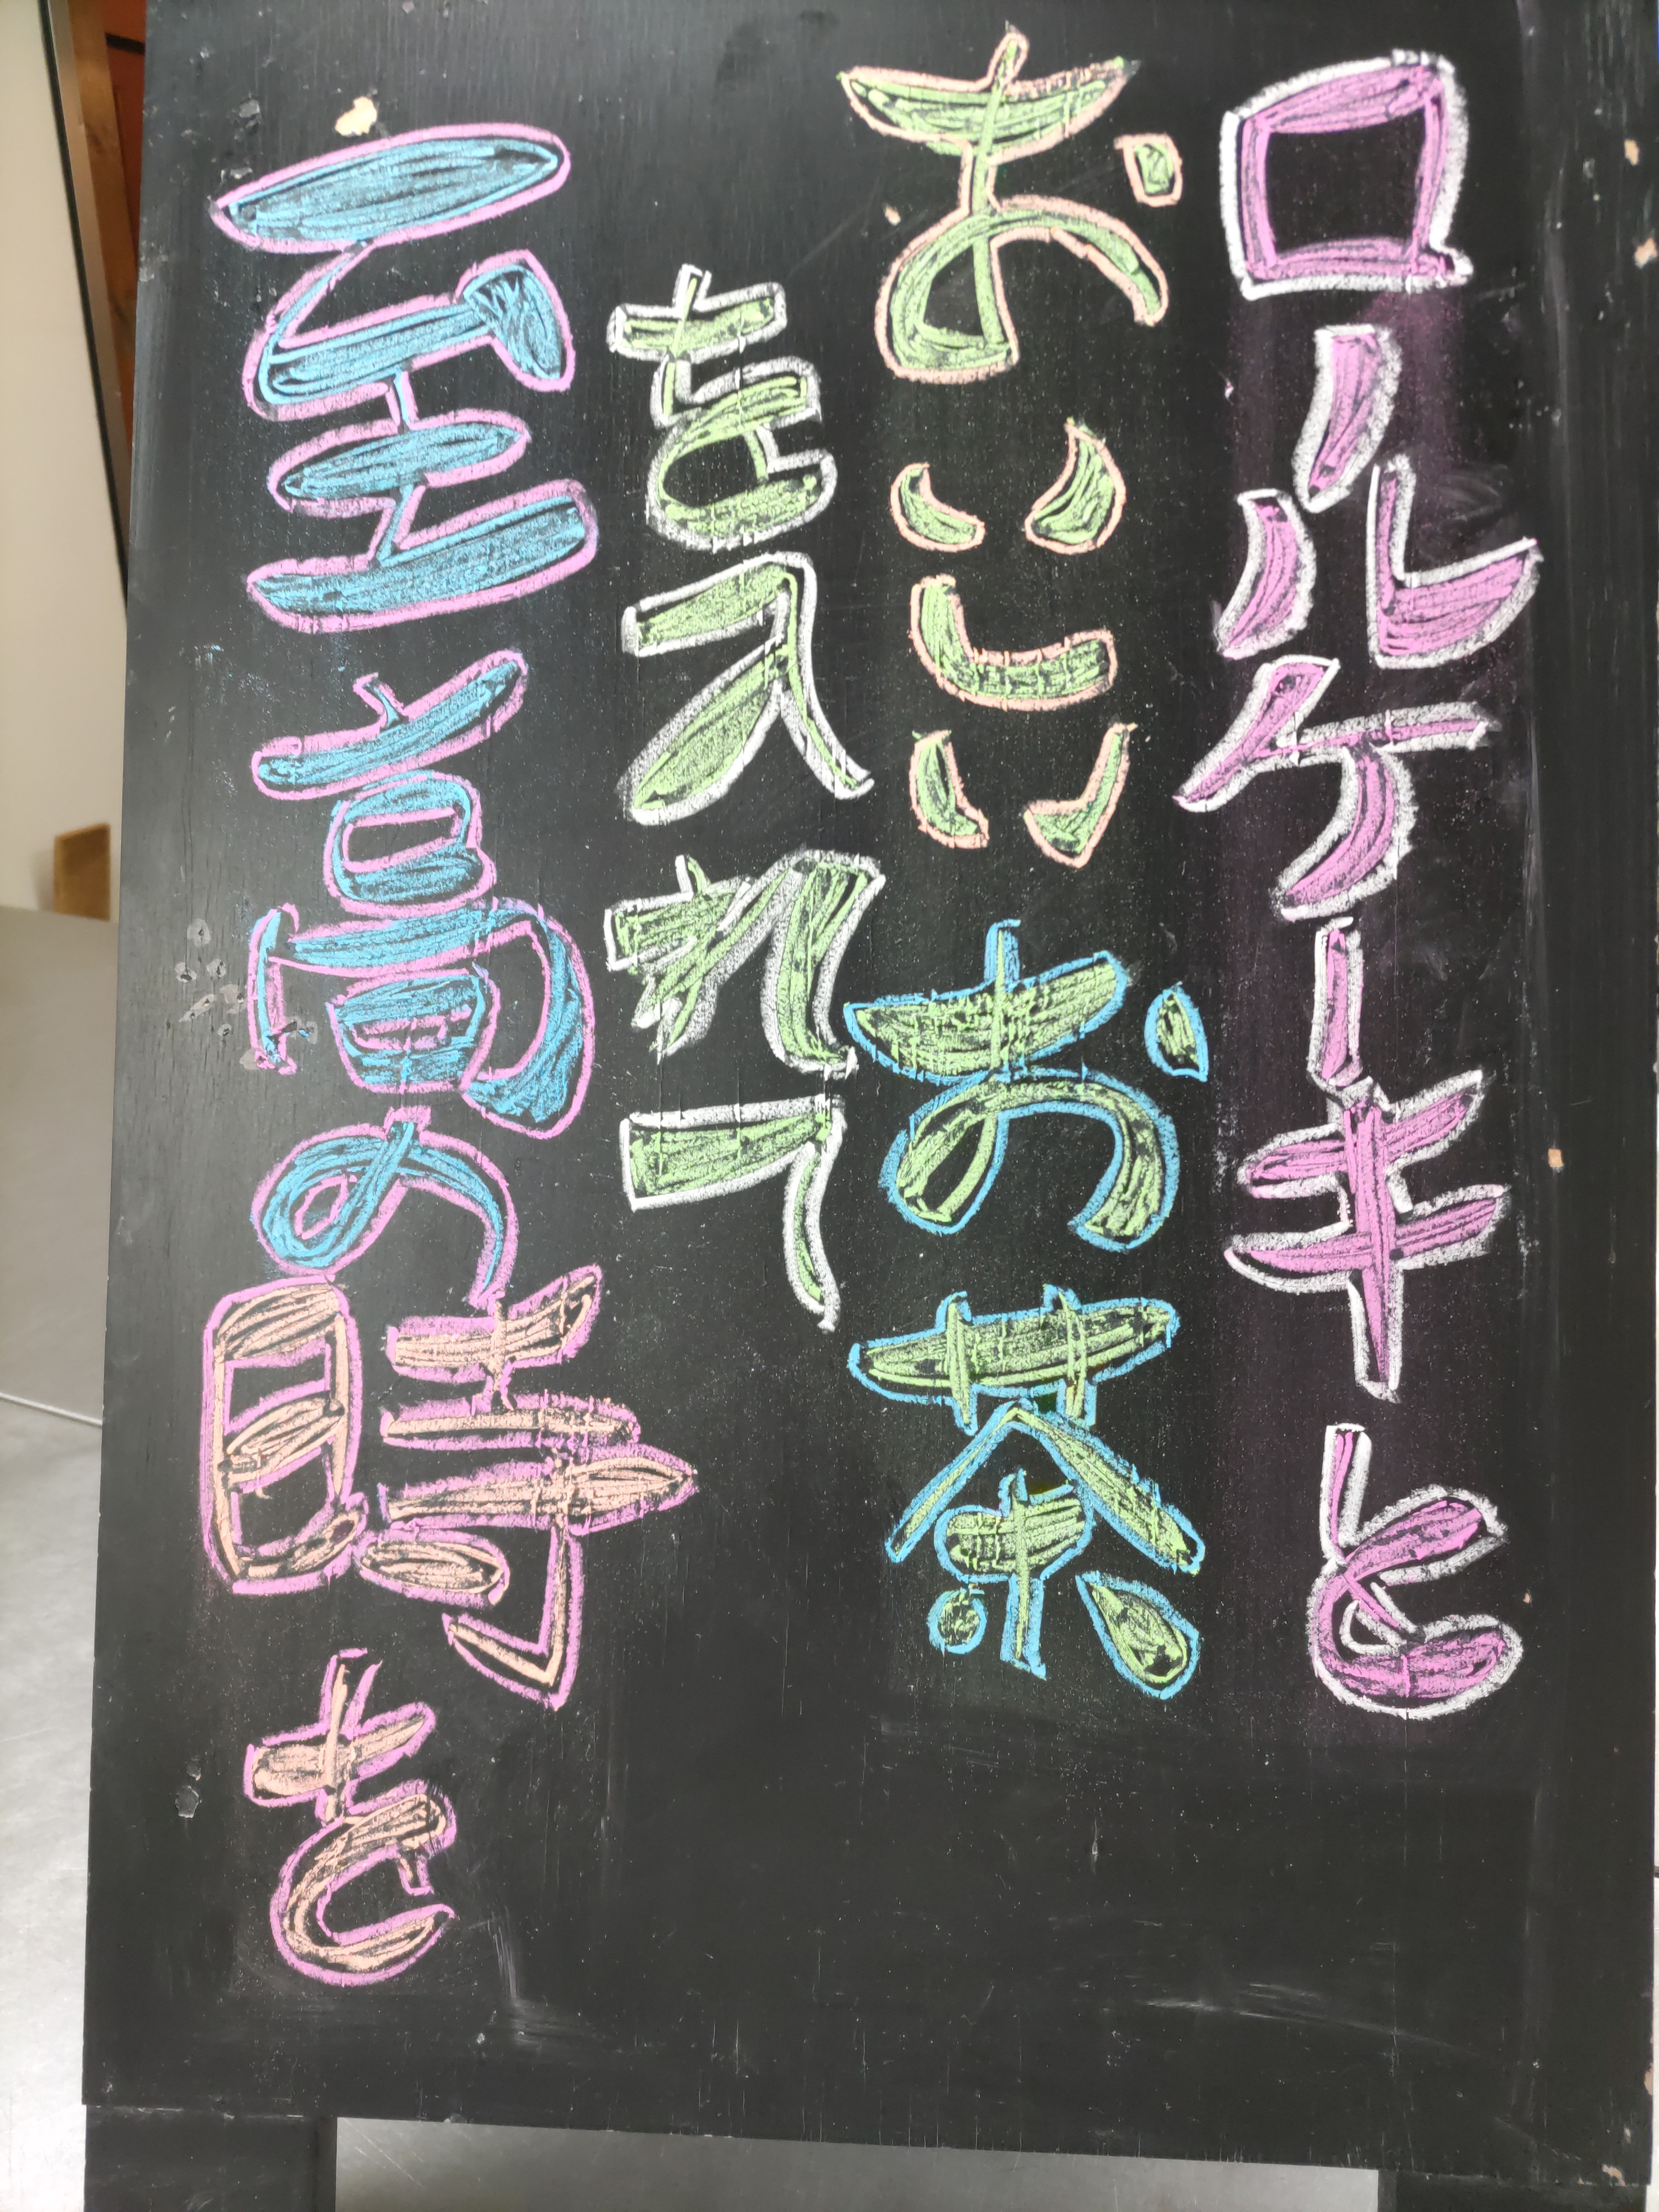 ロールケーキと
おいしいお茶
を入れて
至高の時を